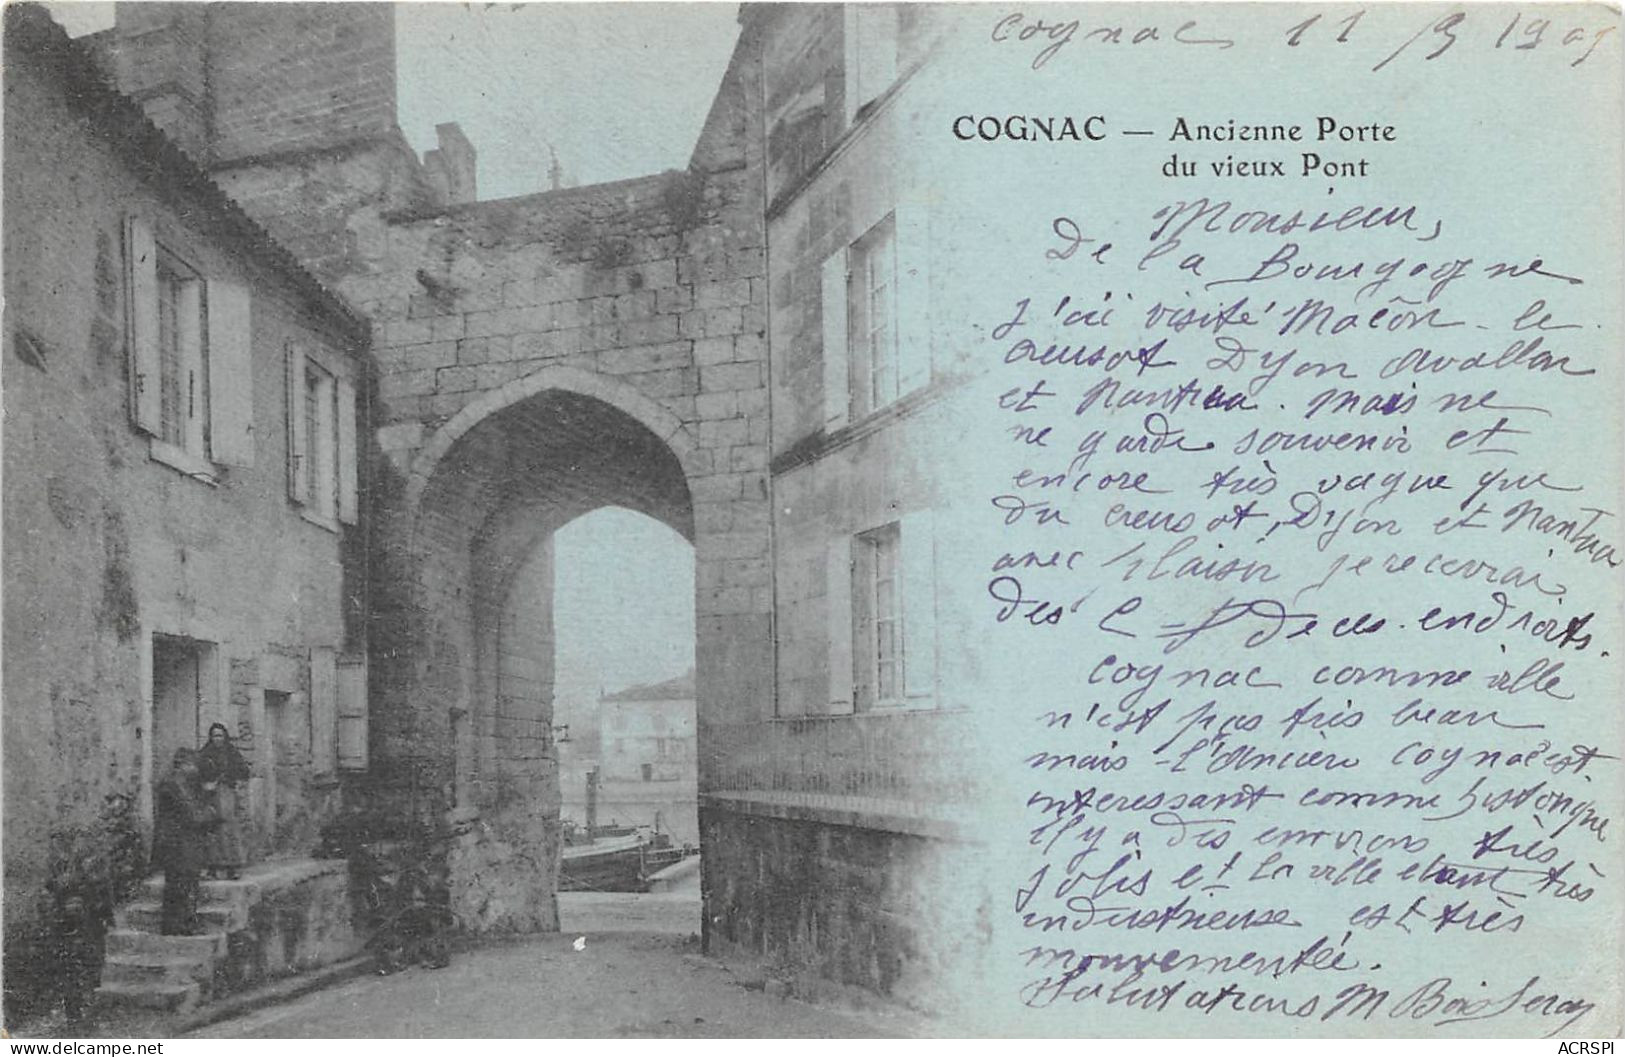 Cognac 11/9 190
COGNAC — Ancienne Porte
du vieux Pont
Monsieur,
De la Bourgogne
j'ai visité Macôn - le
Creusot Dyon Avallon
et Nantua. Mais ne
ne garde souvenir et
encore très vague que
du Creusot, Dyon et Nantua
avec plaisir je recevrai
des C de ces endroits.
Cognac comme ville
n'est pas très beau
mais - l'Ancien Cognac est
interessant comme historique
il y a des environs très
jolis et la ville etant très
industrieuse est très
mouvementée.
Salutations M
ACRSPI